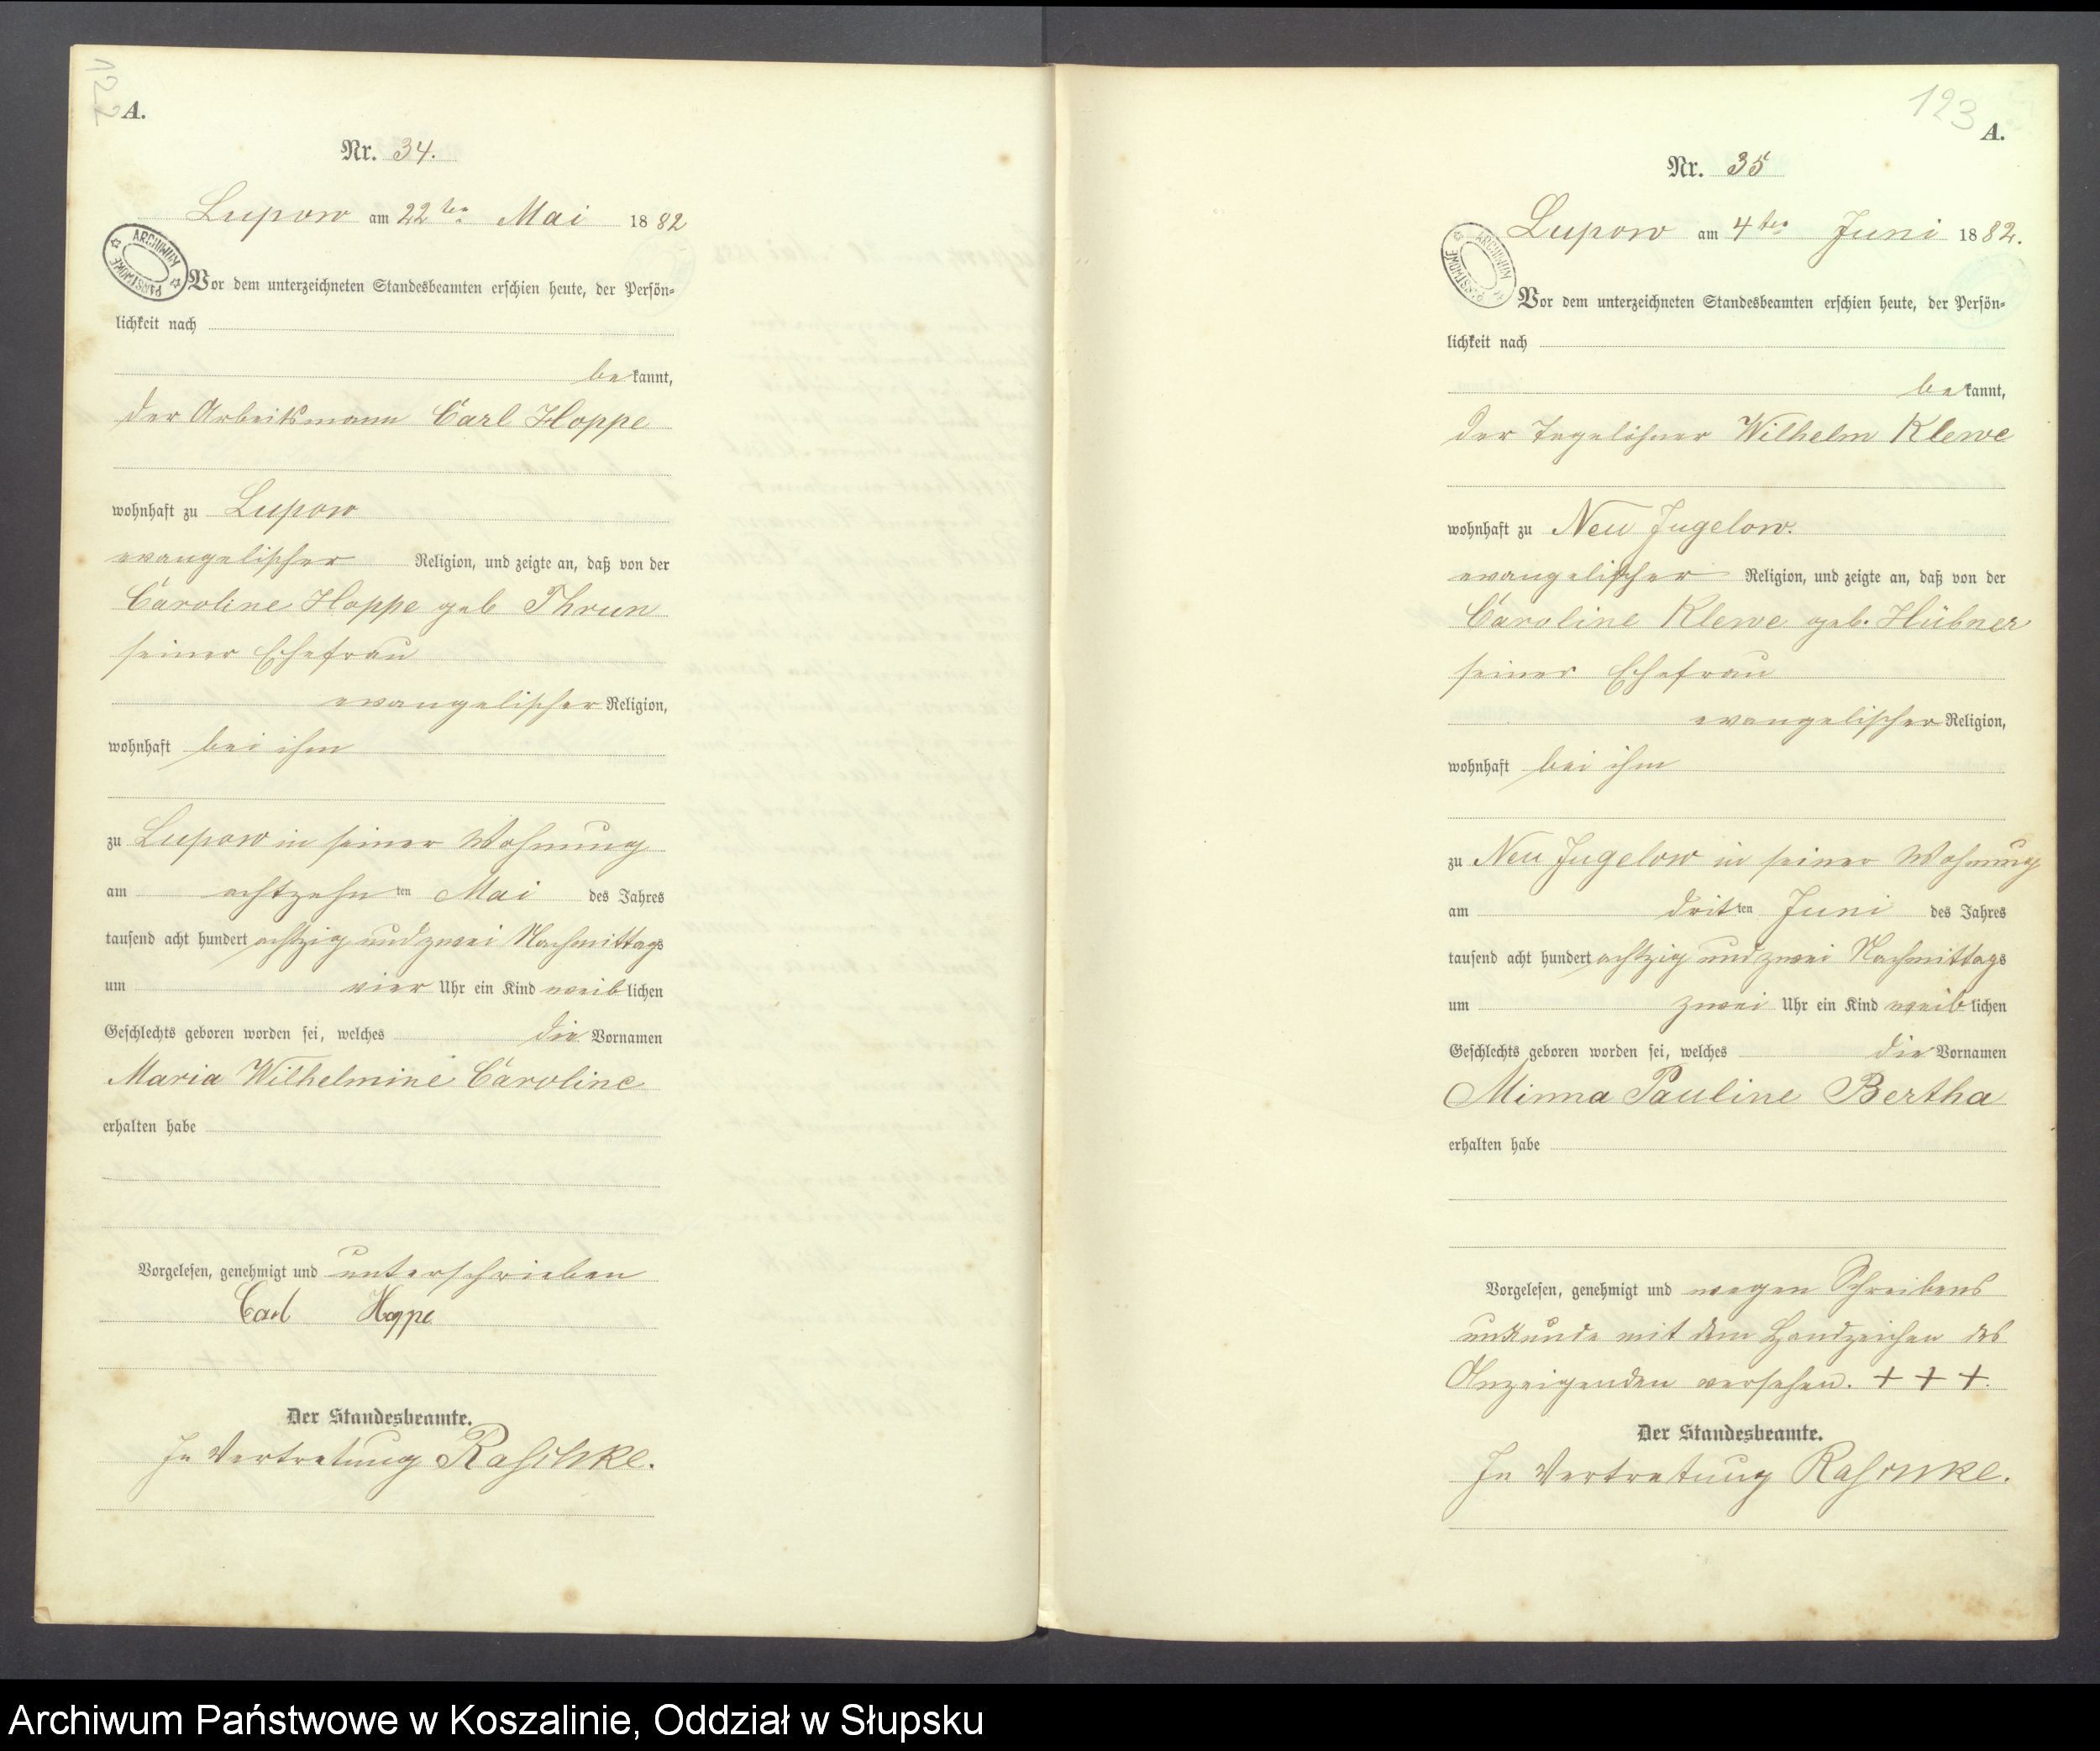 122
A.
Nr. 34.
Lupow am 22ten Mai 1882
ARCHIWUM PAŃSTWOWE
Vor dem unterzeichneten Standesbeamten erschien heute, der Persön=
lichkeit nach
bekannt,
der Arbeitsmann Carl Hoppe
wohnhaft zu Lupow
evangelischer Religion, und zeigte an, daß von der
Caroline Hoppe geb Thrun
seiner Ehefrau
evangelischer Religion,
wohnhaft bei ihm
zu Lupow in seiner Wohnung
am achtzehnten Mai des Jahres
tausend acht hundert achtzig und zwei Nachmittags
um vier Uhr ein Kind weiblichen
Geschlechts geboren worden sei, welches die Vornamen
Maria Wilhelmine Caroline
erhalten habe
Vorgelesen, genehmigt und unterschrieben
Carl Hoppe
Der Standesbeamte.
In Vertretung Raschke.
123
A.
Nr. 35
Lupow am 4ten Juni 1882.
ARCHIWUM PAŃSTWOWE
Vor dem unterzeichneten Standesbeamten erschien heute, der Persön=
lichkeit nach
bekannt,
der Tagelöhner Wilhelm Klewe
wohnhaft zu Neu Jugelow.
evangelischer Religion, und zeigte an, daß von der
Caroline Klewe geb. Hübner
seiner Ehefrau
evangelischer Religion,
wohnhaft bei ihm
zu Neu Jugelow in seiner Wohnung
am dritten Juni des Jahres
tausend acht hundert achtzig und zwei Nachmittags
um zwei Uhr ein Kind weiblichen
Geschlechts geboren worden sei, welches die Vornamen
Minna Pauline Bertha
erhalten habe
Vorgelesen, genehmigt und wegen Schreibens
unkunde mit dem Handzeichen des
Anzeigenden versehen. + + +.
Der Standesbeamte.
In Vertretung Raschke.
Archiwum Państwowe w Koszalinie, Oddział w Słupsku